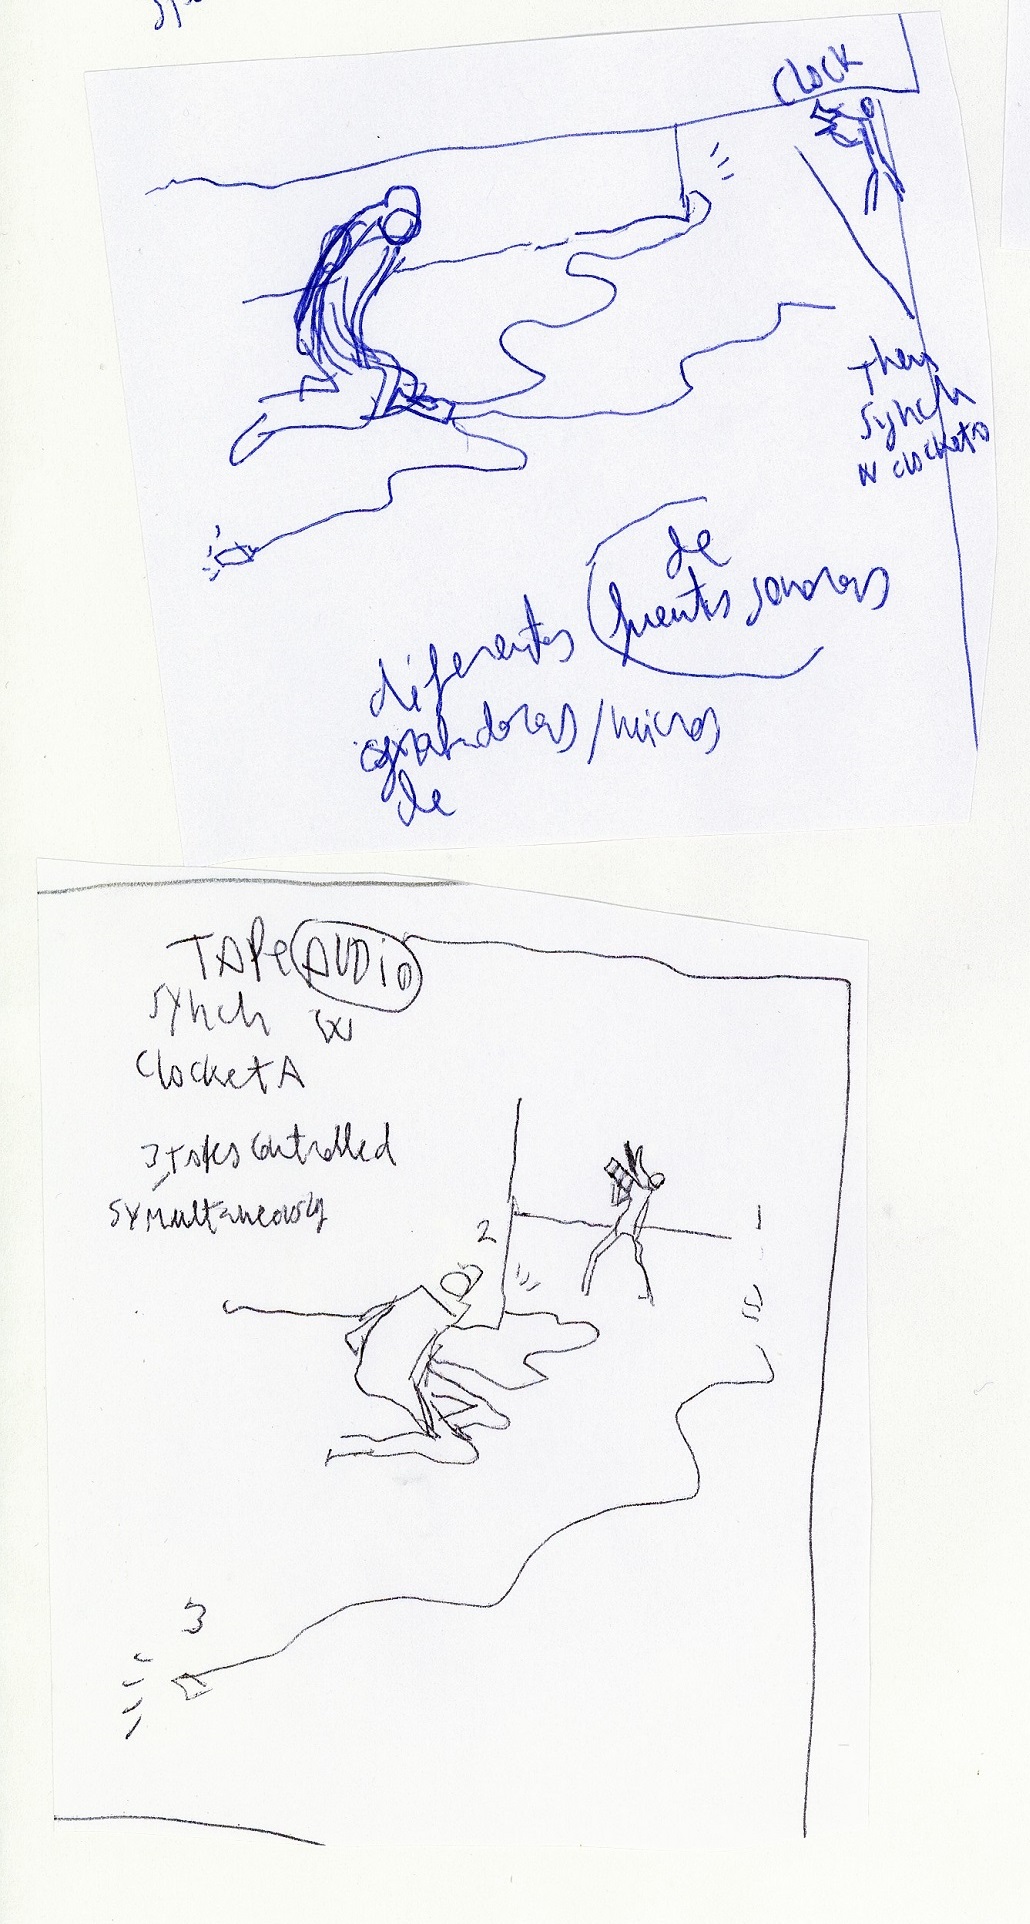 CLOCK
Then
synch
w clocketa
de
fuentes sonoras
diferentes
grabadoras/micros
de
TAPE AUDIO
synch w
clocket A
3 tapes controlled
symultaneously
1
2
3